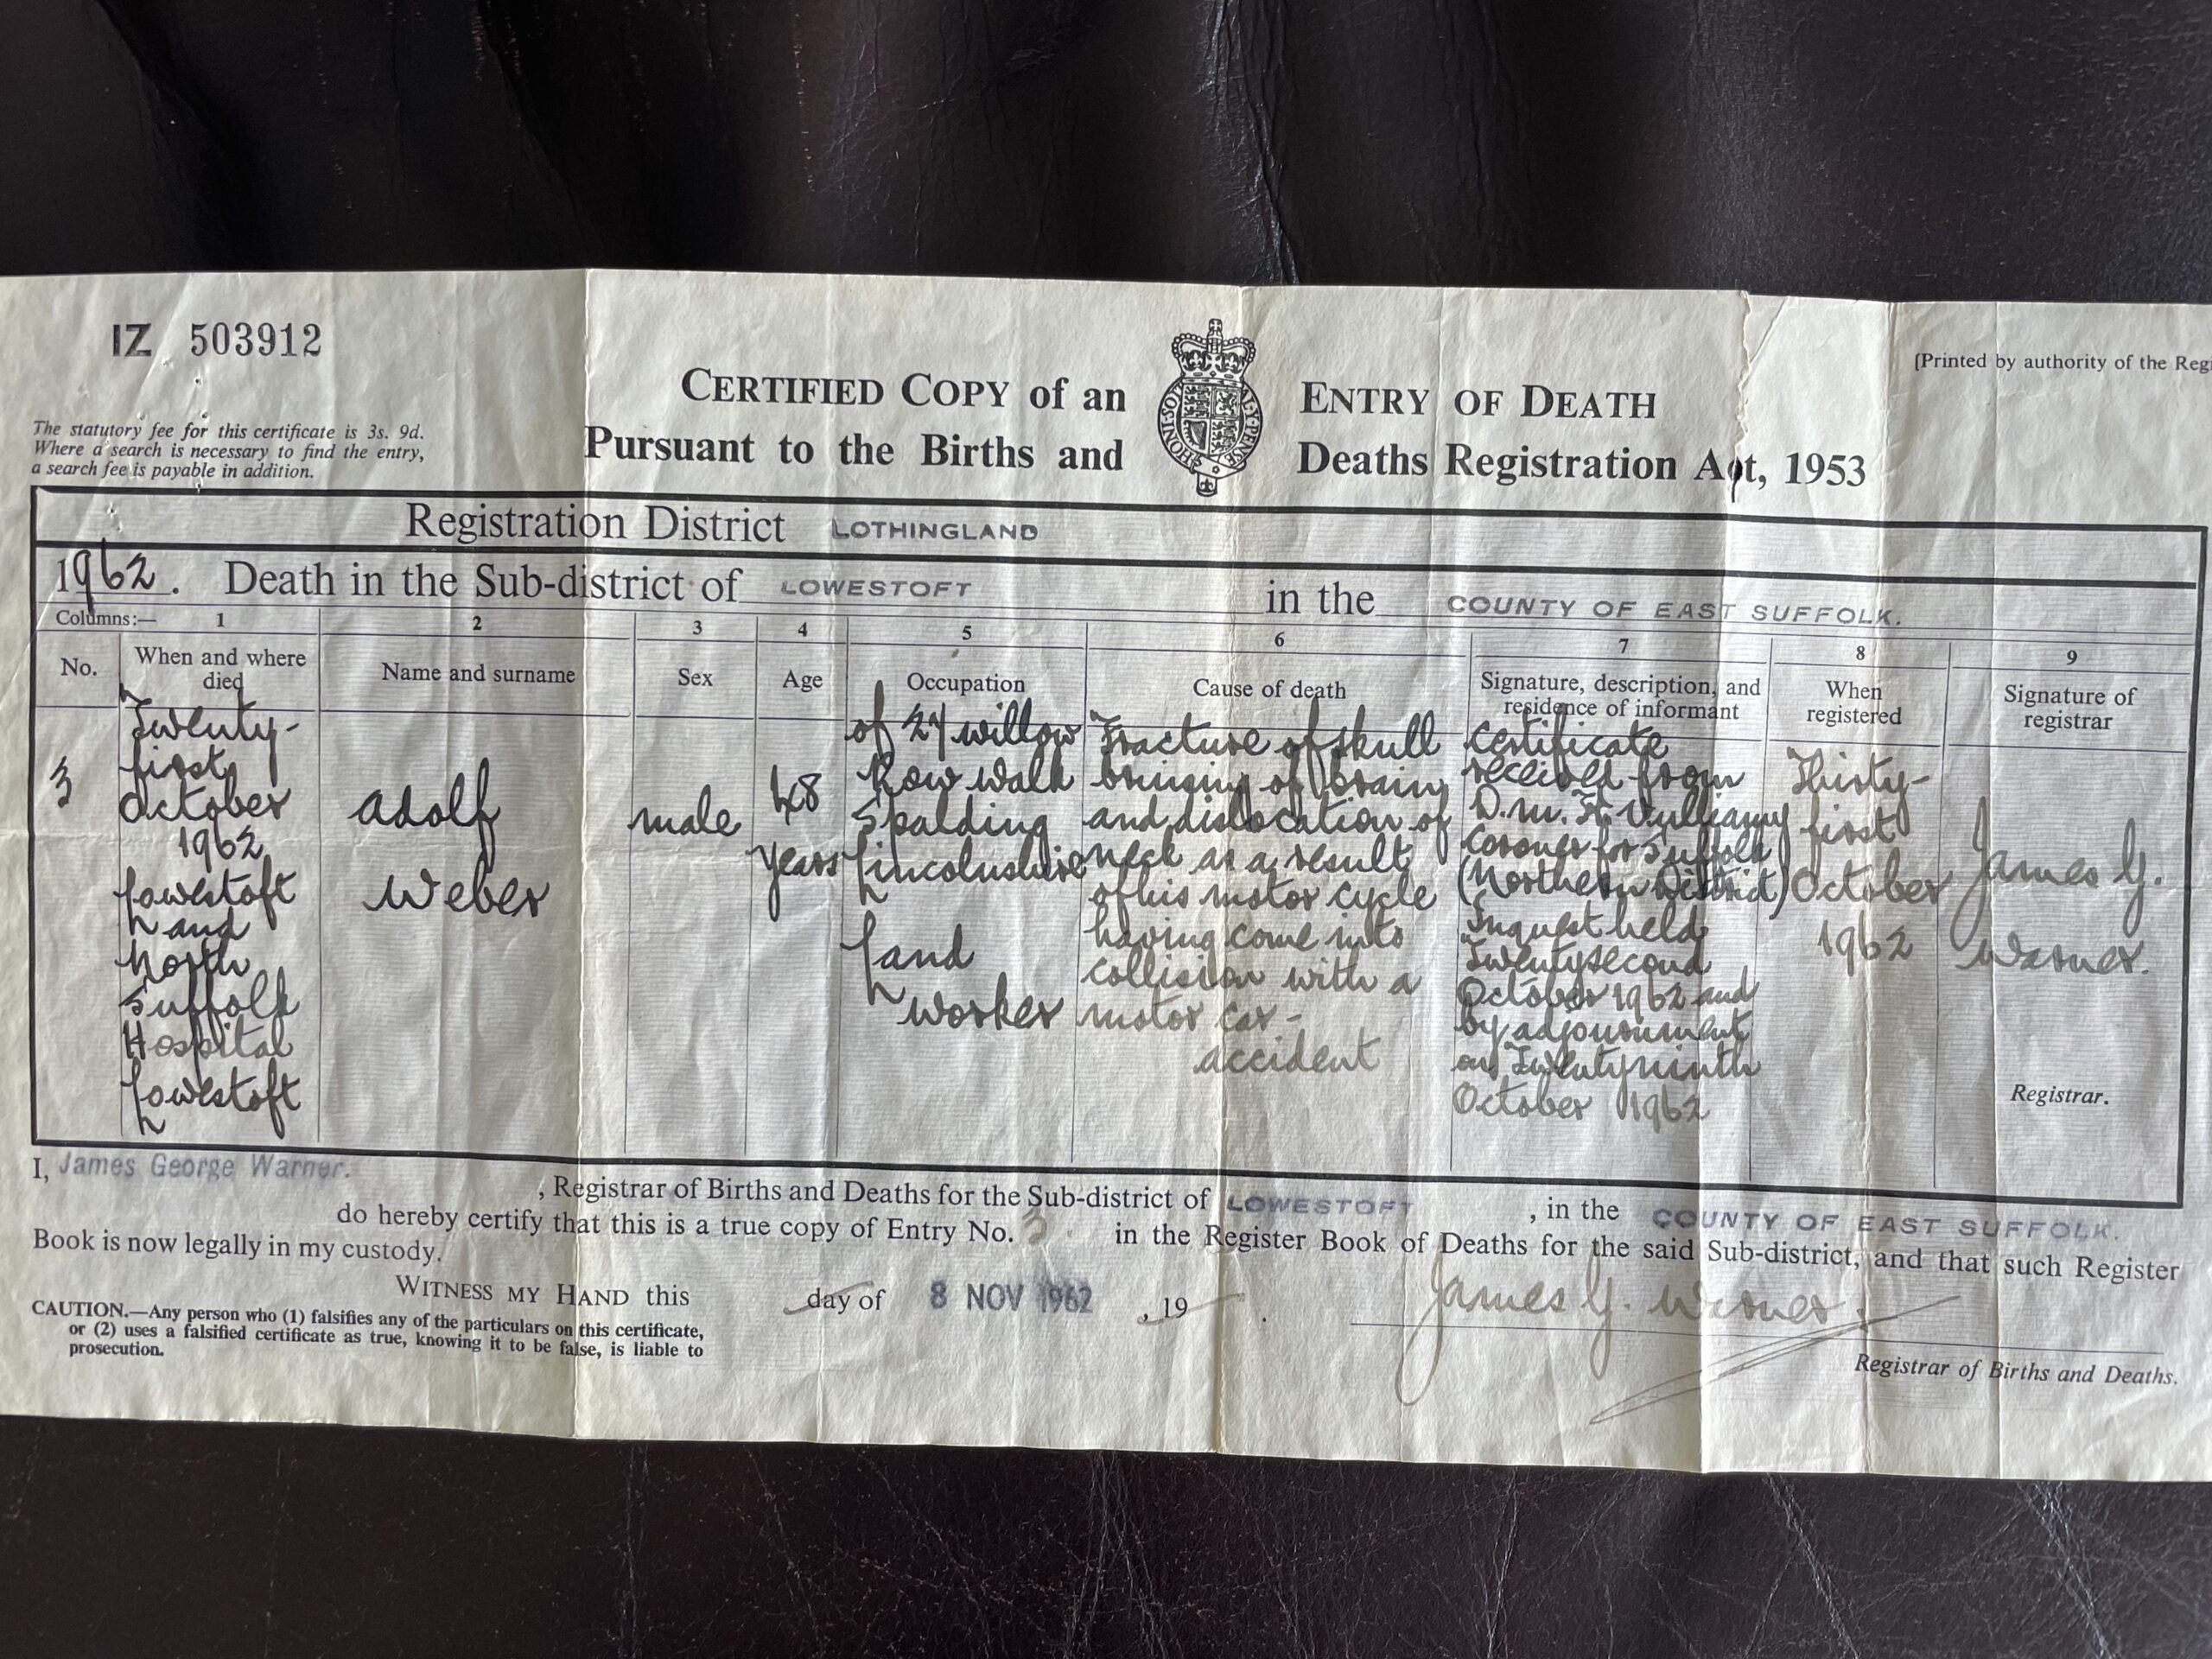 IZ 503912
[Printed by authority of the Reg
CERTIFIED COPY of an ENTRY OF DEATH
Pursuant to the Births and Deaths Registration Act, 1953
HONI·SOI AL·Y·PENSE
The statutory fee for this certificate is 3s. 9d.
Where a search is necessary to find the entry,
a search fee is payable in addition.
Registration District LOTHINGLAND
1962. Death in the Sub-district of LOWESTOFT in the COUNTY OF EAST SUFFOLK.
Columns:— 1 2 3 4 5 6 7 8 9
No.
When and where
died
Name and surname
Sex
Age
Occupation
Cause of death
Signature, description, and
residence of informant
When
registered
Signature of
registrar
3
Twenty-
first
October
1962
Lowestoft
and
North
Suffolk
Hospital
Lowestoft
Adolf
Weber
male
48
years
of 24 Willow
Row Walk
Spalding
Lincolnshire
Land
Worker
Fracture of skull
bruising of brain
and dislocation of
neck as a result
of his motor cycle
having come into
collision with a
motor car -
accident
Certificate
received from
D.M. Vulliamy
Coroner for Suffolk
(Northern District)
Inquest held
Twentysecond
October 1962 and
by adjournment
on Twentyninth
October 1962
Thirty-
first
October
1962
James G.
Warner.
Registrar.
I, James George Warner.
, Registrar of Births and Deaths for the Sub-district of LOWESTOFT , in the COUNTY OF EAST SUFFOLK.
do hereby certify that this is a true copy of Entry No. 3. in the Register Book of Deaths for the said Sub-district, and that such Register
Book is now legally in my custody.
WITNESS MY HAND this day of 8 NOV 1962 , 19 .
James G. Warner.
CAUTION.—Any person who (1) falsifies any of the particulars on this certificate,
or (2) uses a falsified certificate as true, knowing it to be false, is liable to
prosecution.
Registrar of Births and Deaths.